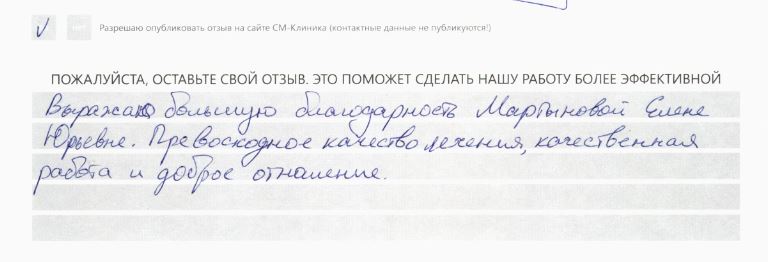 нет Разрешаю опубликовать отзыв на сайте СМ-Клиника (контактные данные не публикуются!)
ПОЖАЛУЙСТА, ОСТАВЬТЕ СВОЙ ОТЗЫВ. ЭТО ПОМОЖЕТ СДЕЛАТЬ НАШУ РАБОТУ БОЛЕЕ ЭФФЕКТИВНОЙ
Выражаю большую благодарность Мартыновой Елене
Юрьевне. Превосходное качество лечения, качественная
работа и доброе отношение.